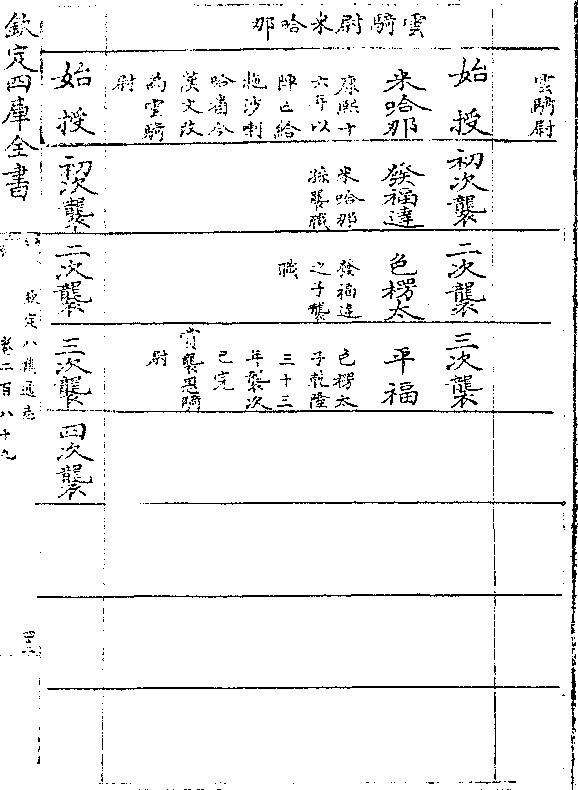 雲騎尉
雲騎尉米哈那
始授
初次襲
二次襲
三次襲
米哈那
康熙十
六年以
陣亡給
拖沙喇
哈番今
漢文改
為雲騎
尉
發福達
米哈那
孫襲職
色楞太
發福達
之子襲
職
平福
色楞太
子乾隆
三十三
年襲次
已完
賞襲恩騎
尉
始授
初次襲
二次襲
三次襲
四次襲
欽定四庫全書
欽定八旗通志
卷二百八十九